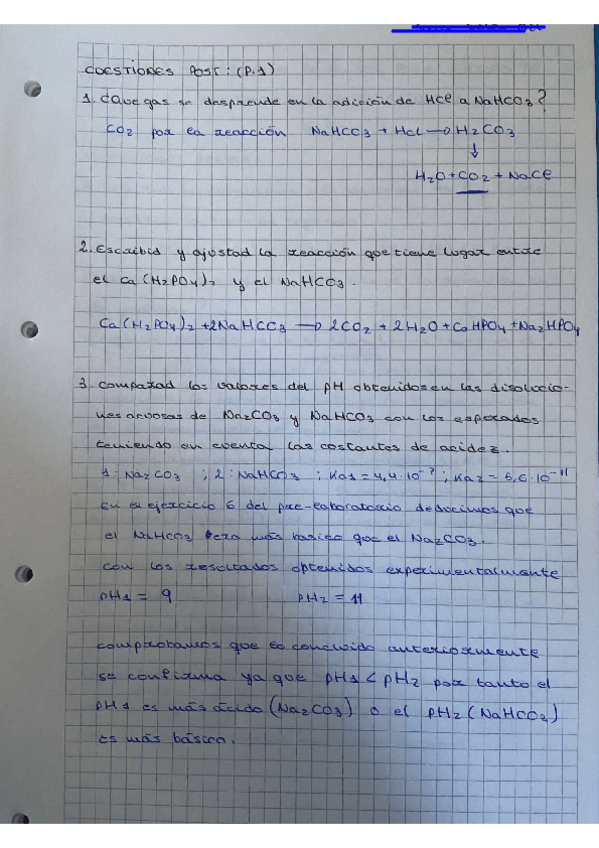 CUESTIONES POST: (P.1)
1. ¿Que gas se desprende en la adición de HCl a NaHCO3?
CO2 por la reacción NaHCO3 + HCl → H2CO3
↓
H2O + CO2 + NaCl
2. Escribid y ajustad la reacción que tiene lugar entre
el Ca(H2PO4)2 y el NaHCO3.
Ca(H2PO4)2 + 2NaHCO3 → 2CO2 + 2H2O + CaHPO4 + Na2HPO4
3. Comparad los valores del pH obtenidos en las disolucio-
nes acuosas de Na2CO3 y NaHCO3 con los esperados
teniendo en cuenta las costantes de acidez.
1: Na2CO3 ; 2: NaHCO3 ; Ka1 = 4,4·10⁻⁷ ; Ka2 = 5,6·10⁻¹¹
En el ejercicio 6 del pre-laboratorio deducimos que
el NaHCO3 era más basico que el Na2CO3.
Con los resultados obtenidos experimentalmente
pH1 = 9 pH2 = 11
Comprobamos que lo concluido anteriormente
se confirma ya que pH1 < pH2 por tanto el
pH1 es más ácido (Na2CO3) o el pH2 (NaHCO3)
es más básico.